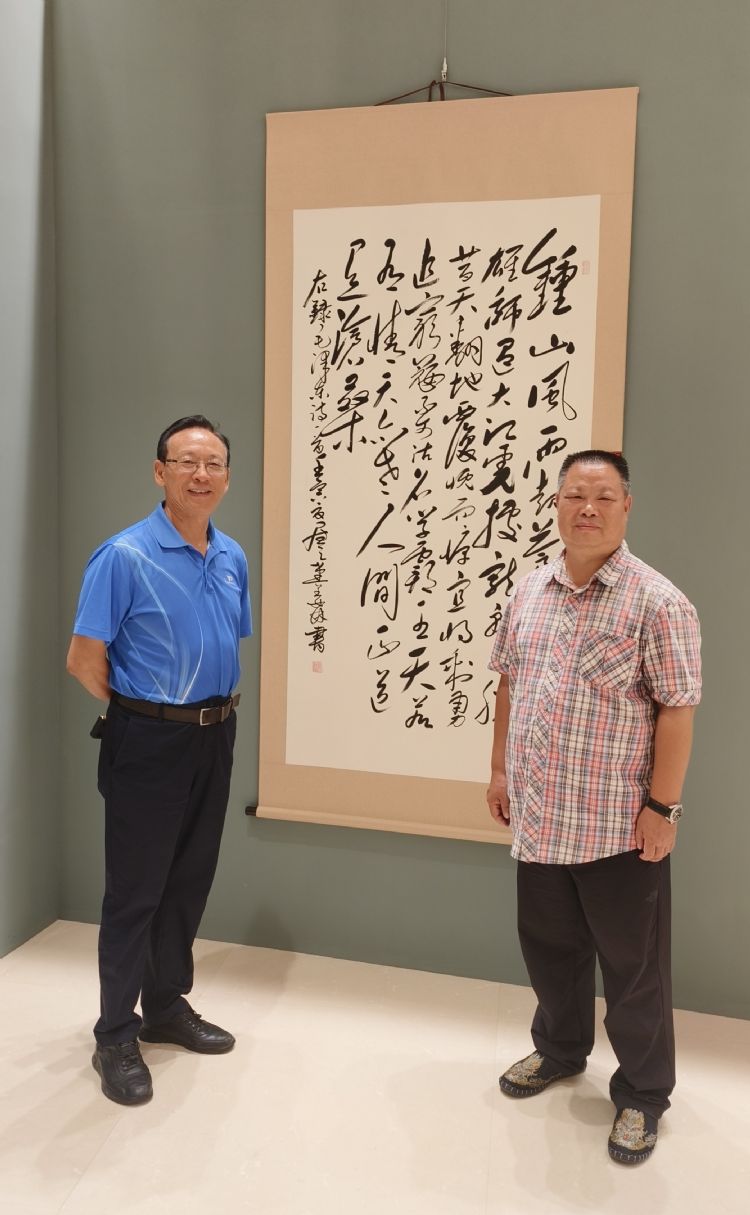 鍾山風雨起蒼
雄師過大江虎據龍
昔天翻地覆慨而慷宜將剩勇
追窮寇不可沽名學霸王天若
有情天亦老人間正道
是滄桑
右録毛澤東詩一首壬寅夏 董 書